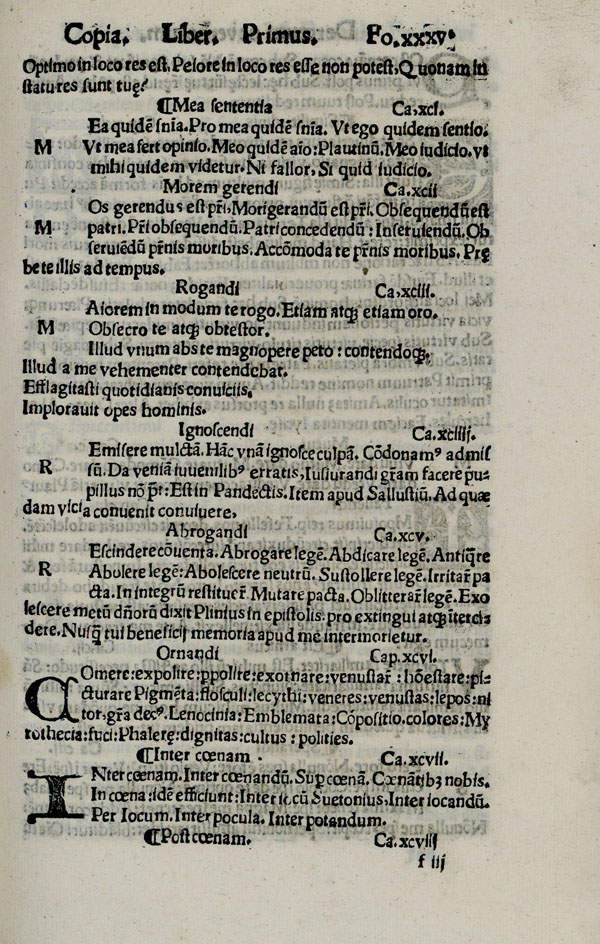 Copia. Liber. Primus. Fo.xxxv.
Optimo in loco res est, Peiore in loco res esse non potest, Quonam in
statu res sunt tuę?
¶Mea sententia Ca,xcI.
Ea quidē sn̄ia. Pro mea quidē sn̄ia. Vt ego quidem sentio.
M Vt mea fert opinio. Meo quidē aīo: Plautinū, Meo iudicio. vt
mihi quidem videtur. Ni fallor, Si quid iudicio.
Morem gerendi Ca.xcii
Os gerendus est pr̄i, Morigerandū est pr̄i. Obsequendū est
M patri. Pr̄i obsequendū. Patri concedendū: Inseruiendū. Ob
seruiēdū pr̄nis moribus. Accōmoda te pr̄nis moribus. Prę
be te illis ad tempus.
Rogandi Ca,xciii.
Aiorem in modum te rogo. Etiam atqȝ etiam oro.
M Obsecro te atqȝ obtestor.
Illud vnum abs te magnopere peto: contendoqȝ.
Illud a me vehementer contendebat.
Efflagitasti quotidianis conuiciis.
Implorauit opes hominis.
Ignoscendi Ca.xciiij.
Emisere mulctā. Hāc vnā ignosce culpā. Cōdonamꝰ admis
R sū. Da veniā iuuenilibꝰ erratis, Iusiurandi gr̄am facere pu-
pillus nō pt̄: Est in Pandectis. Item apud Sallustiū. Ad quæ
dam vicia conuenit coniuere,
Abrogandi Ca.xcv.
Escindere cōuenta. Abrogare legē. Abdicare legē. Antiq̄re
R Abolere legē: Abolescere neutrū. Sustollere legē. Irritar̄ pa
cta. In integrū restituer̄. Mutare pacta. Oblitterar̄ legē. Exo
lescere metū dn̄orū dixit Plinius in epistolis. pro extingui atqȝ ītercia
dere. Nusq̄ tui beneficij memoria apud me intermorietur.
Ornandi Cap.xcvi.
COmere: expolire: ppolite: exornare: venustar̄: hōestare: pi-
cturare Pigmēta: flosculi: lecythi: veneres: venustas: lepos: ni
tor, gr̄a decꝰ. Lenocinia: Emblemata: Cōpositio. colores: My
rothecia: fuci: Phalerę: dignitas: cultus: polities.
¶Inter cœnam. Ca.xcvii.
INter cœnam. Inter cœnandū. Sup cœnā. Cœnātibȝ nobis.
In cœna: idē efficiunt: Inter iocū Suetonius, Inter iocandū.
Per Iocum. Inter pocula. Inter potandum.
¶Post cœnam. Ca.xcviij
f iij